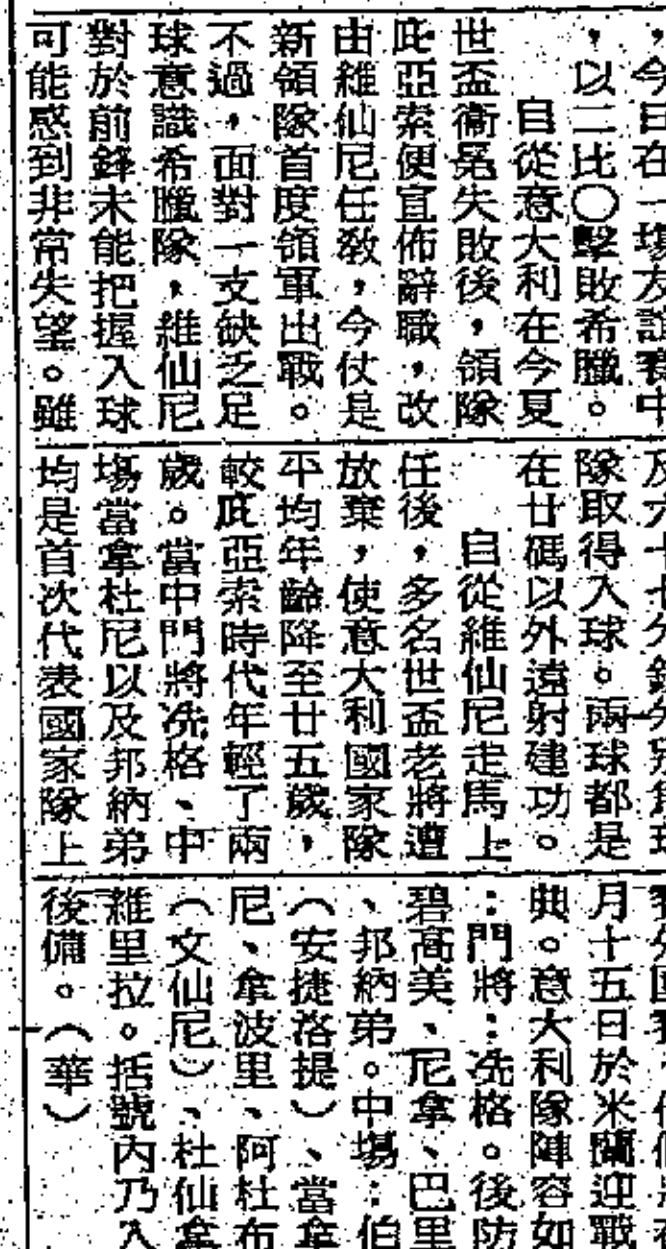 ，今日在一場友誼賽中
，以二比〇擊敗希臘。
自從意大利在今夏
世盃衞冕失敗後，領隊
庇亞索便宣佈辭職，改
由維仙尼任教，今仗是
新領隊首度領軍出戰。
不過，面對一支缺乏足
球意識希臘隊，維仙尼
對於前鋒未能把握入球
可能感到非常失望。雖
隊取得入球。兩球都是
在廿碼以外遠射建功。
自從維仙尼走馬上
任後，多名世盃老將遭
放棄，使意大利國家隊
平均年齡降至廿五歲，
較庇亞索時代年輕了兩
歲。當中門將冼格、中
場當拿杜尼以及邦納弟
均是首次代表國家隊上
月十五日於米蘭迎戰
典。意大利隊陣容如
：門將：冼格。後防
碧高美、尼拿、巴里
、邦納弟。中場：伯
（安捷洛提）、當拿
尼、拿波里、阿杜布
（文仙尼）、杜仙拿
維里拉。括號內乃入
後備。（華）